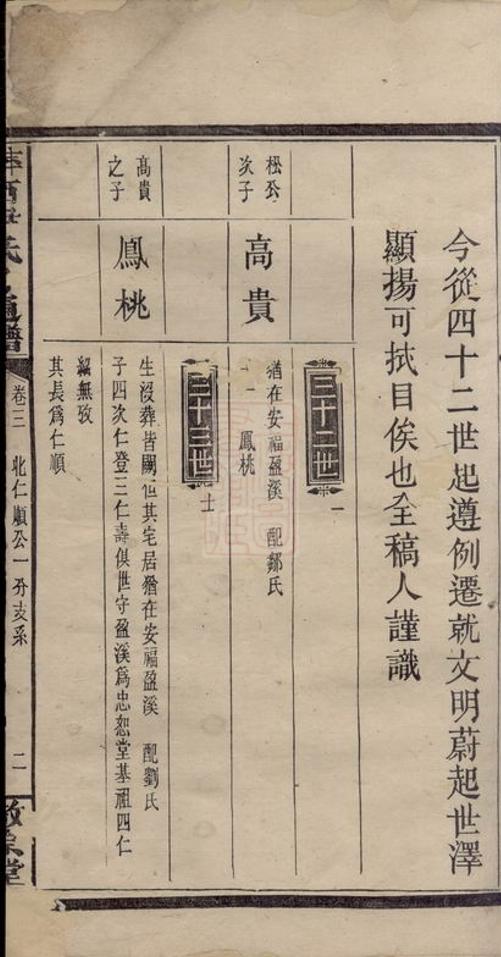 今從四十二世起遵例遷就文明蔚起世澤
顯揚可拭目俟也全稿人謹識
三十二世 一
松公次子
高貴
猶在安福盈溪 配鄒氏
子一 鳳桃
三十三世 士
高貴之子
鳳桃
生沒葬皆闕但其宅居猶在安福盈溪 配劉氏
子四次仁登三仁壽俱世守盈溪爲忠恕堂基祖四仁
紹無攷
其長爲仁順
氏通譜 卷三 北仁順公一分支系 二 敬彔堂